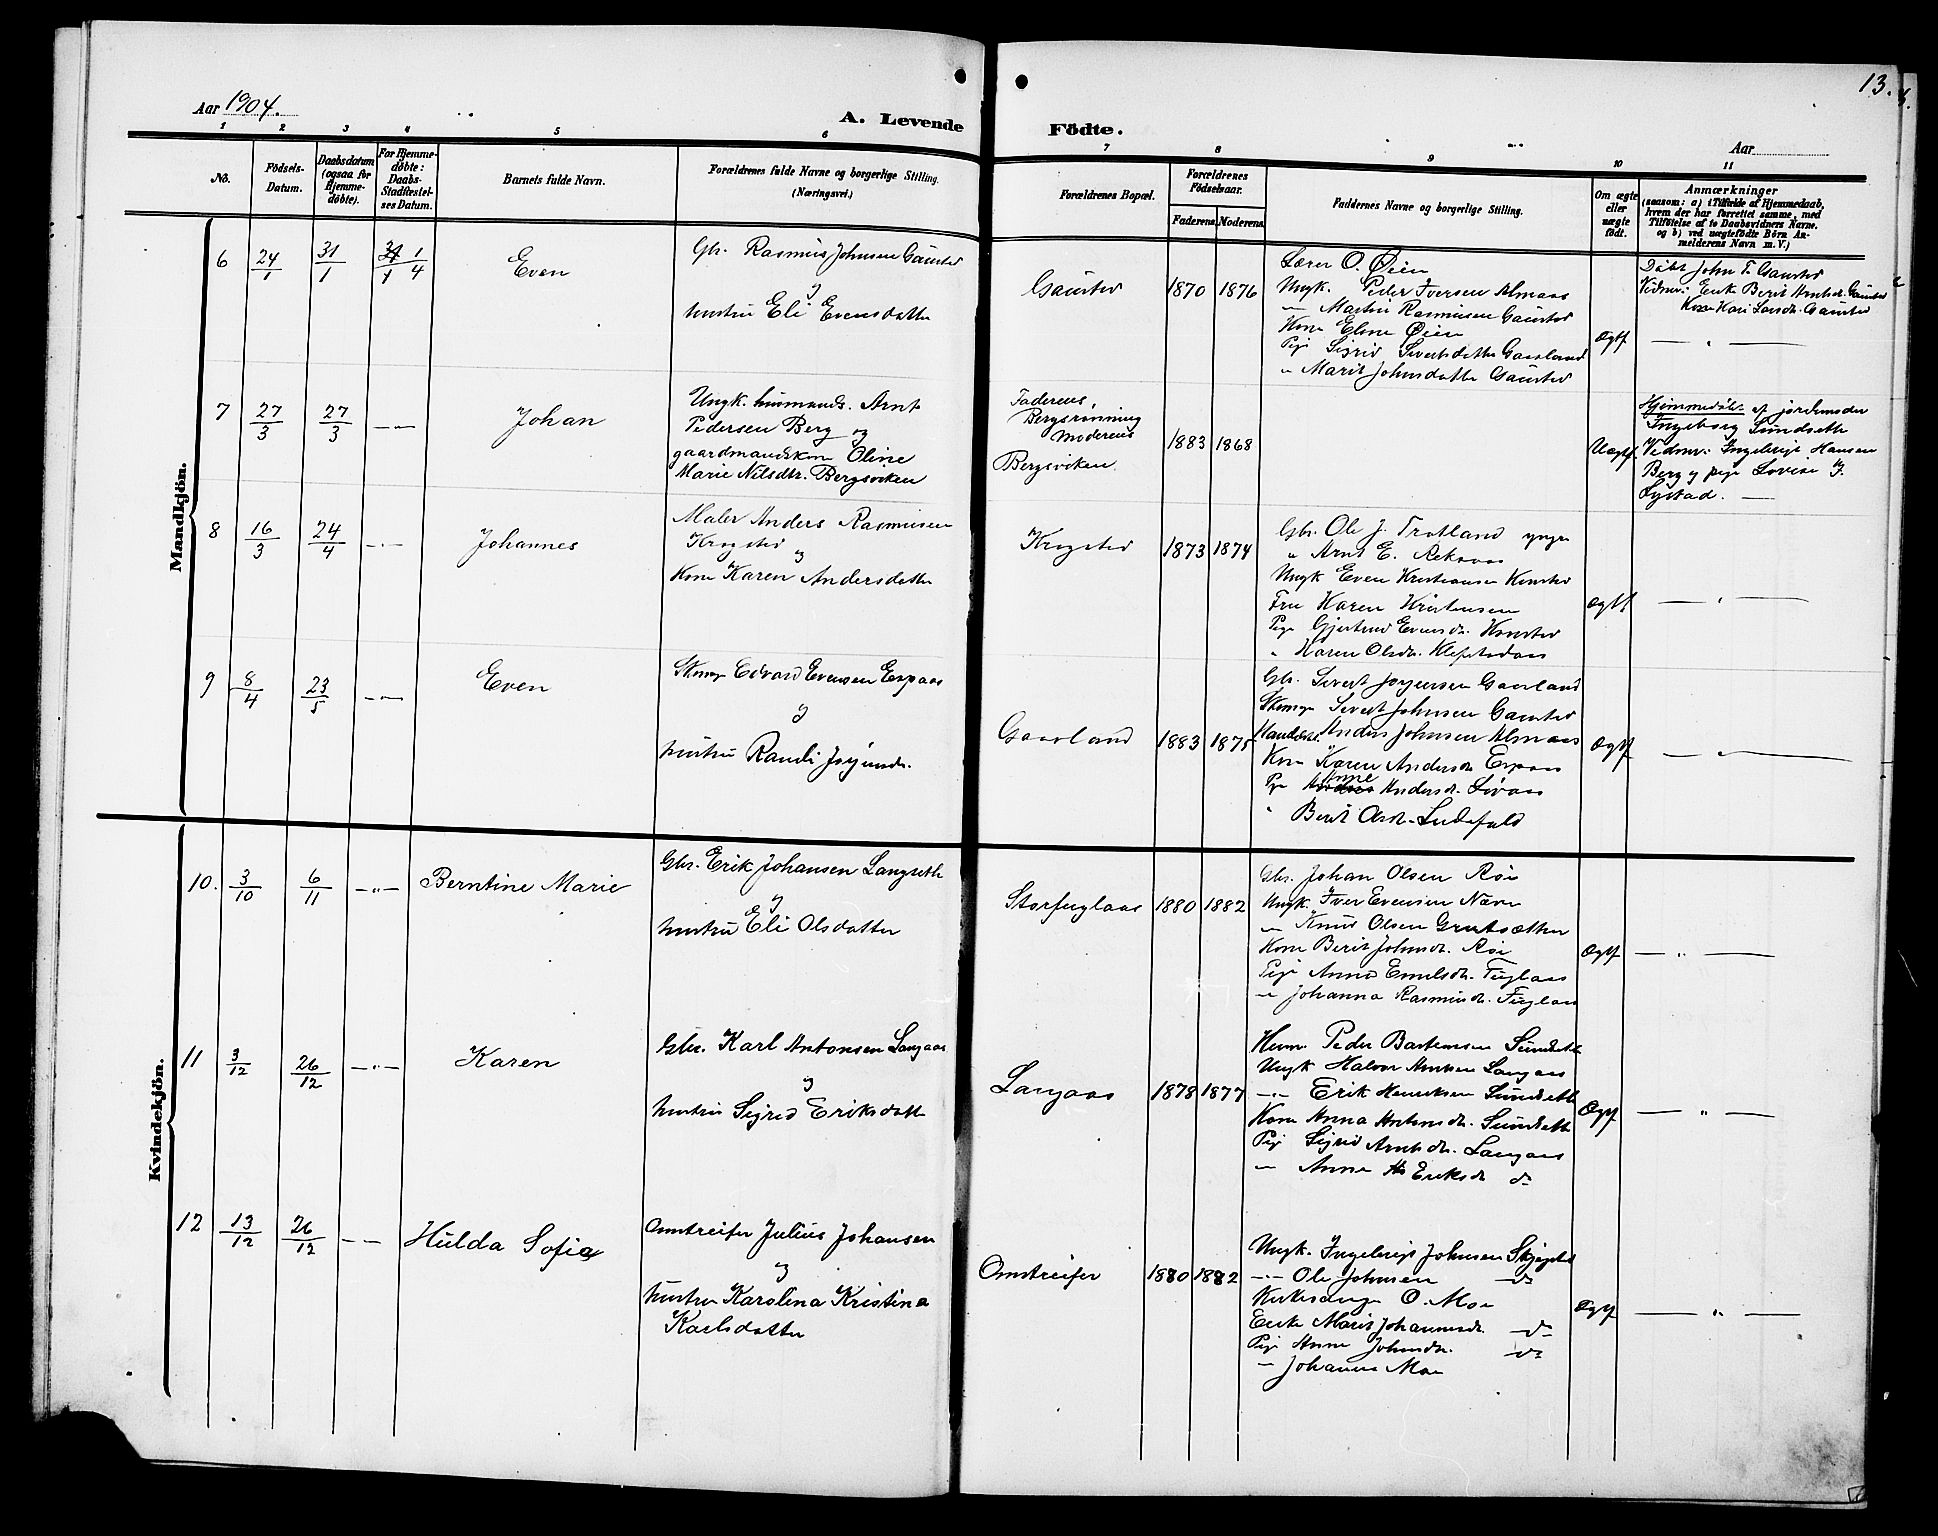 13.
Aar 1904.
A. Levende Födte.
Aar
1 2 3 4 5 6 7 8 9 10 11
No.
Födsels-Datum.
Daabsdatum (ogsaa for Hjemme-döbte).
For Hjemme-döbte: Daabs-Stadfæstel-ses Datum.
Barnets fulde Navn.
Forældrenes fulde Navne og borgerlige Stilling.
(Næringsvei.)
Forældrenes Bopæl.
Forældrenes Födselsaar.
Faderens. Moderens.
Faddernes Navne og borgerlige Stilling.
Om ægte eller uægte födt.
Anmærkninger
(saasom: a) i Tilfælde af Hjemmedaab,
hvem der har forrettet samme, med
Tilföielse af to Daabsvidners Navne.
og b) ved uægtefödte Börn An-
melderens Navn m. V.)
Mandkjön.
6 24/1 31/1 31/1 1/4 Even
Gbr. Rasmus Johnsen Gaustad
og
hustru Eli Evensdatter
Gaustad 1870 1876
Lærer O. Øien
Ungk. Peder Iversen Almaas
" Martin Rasmussen Gaustad
Kone Eline Øien
Pige Sigrid Sivertsdatter Gaasland
" Marit Johnsdatter Gaustad
Ægtf
Døbt John T. Gaustad
Vidner: Enke Berit Arntsd. Gaustad
Kone Kari Larsdr. Gaustad
7 27/3 27/3 — " — Johan
Ungk. husmands. Arnt
Pedersen Berg og
gaardmandskone Oline
Marie Nilsdtr. Bergsviken
Faderens,
Bergsrønning
Moderens
Bergsviken
1883 1868
Uægtf.
Hjemmedøbt af jordemoder
Ingeborg Sundseth
Vidner: Ingebrigt Hansen
Berg og pige Lovise J.
Lystad. —
8 16/3 24/4 — " — Johannes
Maler Anders Rasmussen
Krogstad
og
Kone Karen Andersdatter
Krogstad 1873 1874
Gbr. Ole J. Trotland yngre
" Arnt E.
Ungk Even Kristiansen
Fru Karen Kristensen
Pige Gjertrud Evensdr.
" Karen Olsdr.
Ægtf — " —
9 8/4 23/5 — " — Even
Skomgr Edvard Evensen Espaas
og
hustru Randi Jørgensdr.
Gaasland 1883 1875
Gbr. Sivert Jørgensen Gaasland
Skomgr Sivert Johnsen Gaustad
Anders Johnsen Almaas
Kone Karen Andersdr Espaas
Pige Anne Andersdr.
" Berit Olsdr.
Ægtf — " —
Kvindekjön.
10. 3/10 6/11 — " — Berntine Marie
Gbr. Erik Johansen Langseth
og
hustru Eli Olsdatter
Storfuglaas 1880 1882
Gbr. Johan Olsen Røe
Ungk. Iver Evensen
" Knut Olsen Grutsæther
Kone Berit Johnsdr. Røe
Pige Anna Emelsdr. Fuglaas
" Johanna Rasmusdr. Fuglaas
Ægtf — " —
11 3/12 26/12 — " — Karen
Gbr. Karl Antonsen Langaas
og
hustru Sigrid Eriksdatt
Langaas 1878 1877
Husm. Peder Sundseth
Ungk Halvor Arntsen Langaas
— " — Erik Henriksen Sundseth
Kone Anna Antonsdr. Sundseth
Pige Sigrid Arntsdr. Langaas
" Anne Eriksdr do
Ægtf — " —
12 13/12 26/12 — — Hulda Sofia
Omstreifer Julius Johansen
og
hustru Karolina Kristina
Karlsdatter
Omstreifer 1880 1882
Ungk. Ingebrigt Johnsen
— " — Ole Johnsen do
Kirkesanger O. Moe
Enke Marit Johannesdr. do
Pige Anne Johnsdr. do
" Johanna Moe
Ægtf — " —